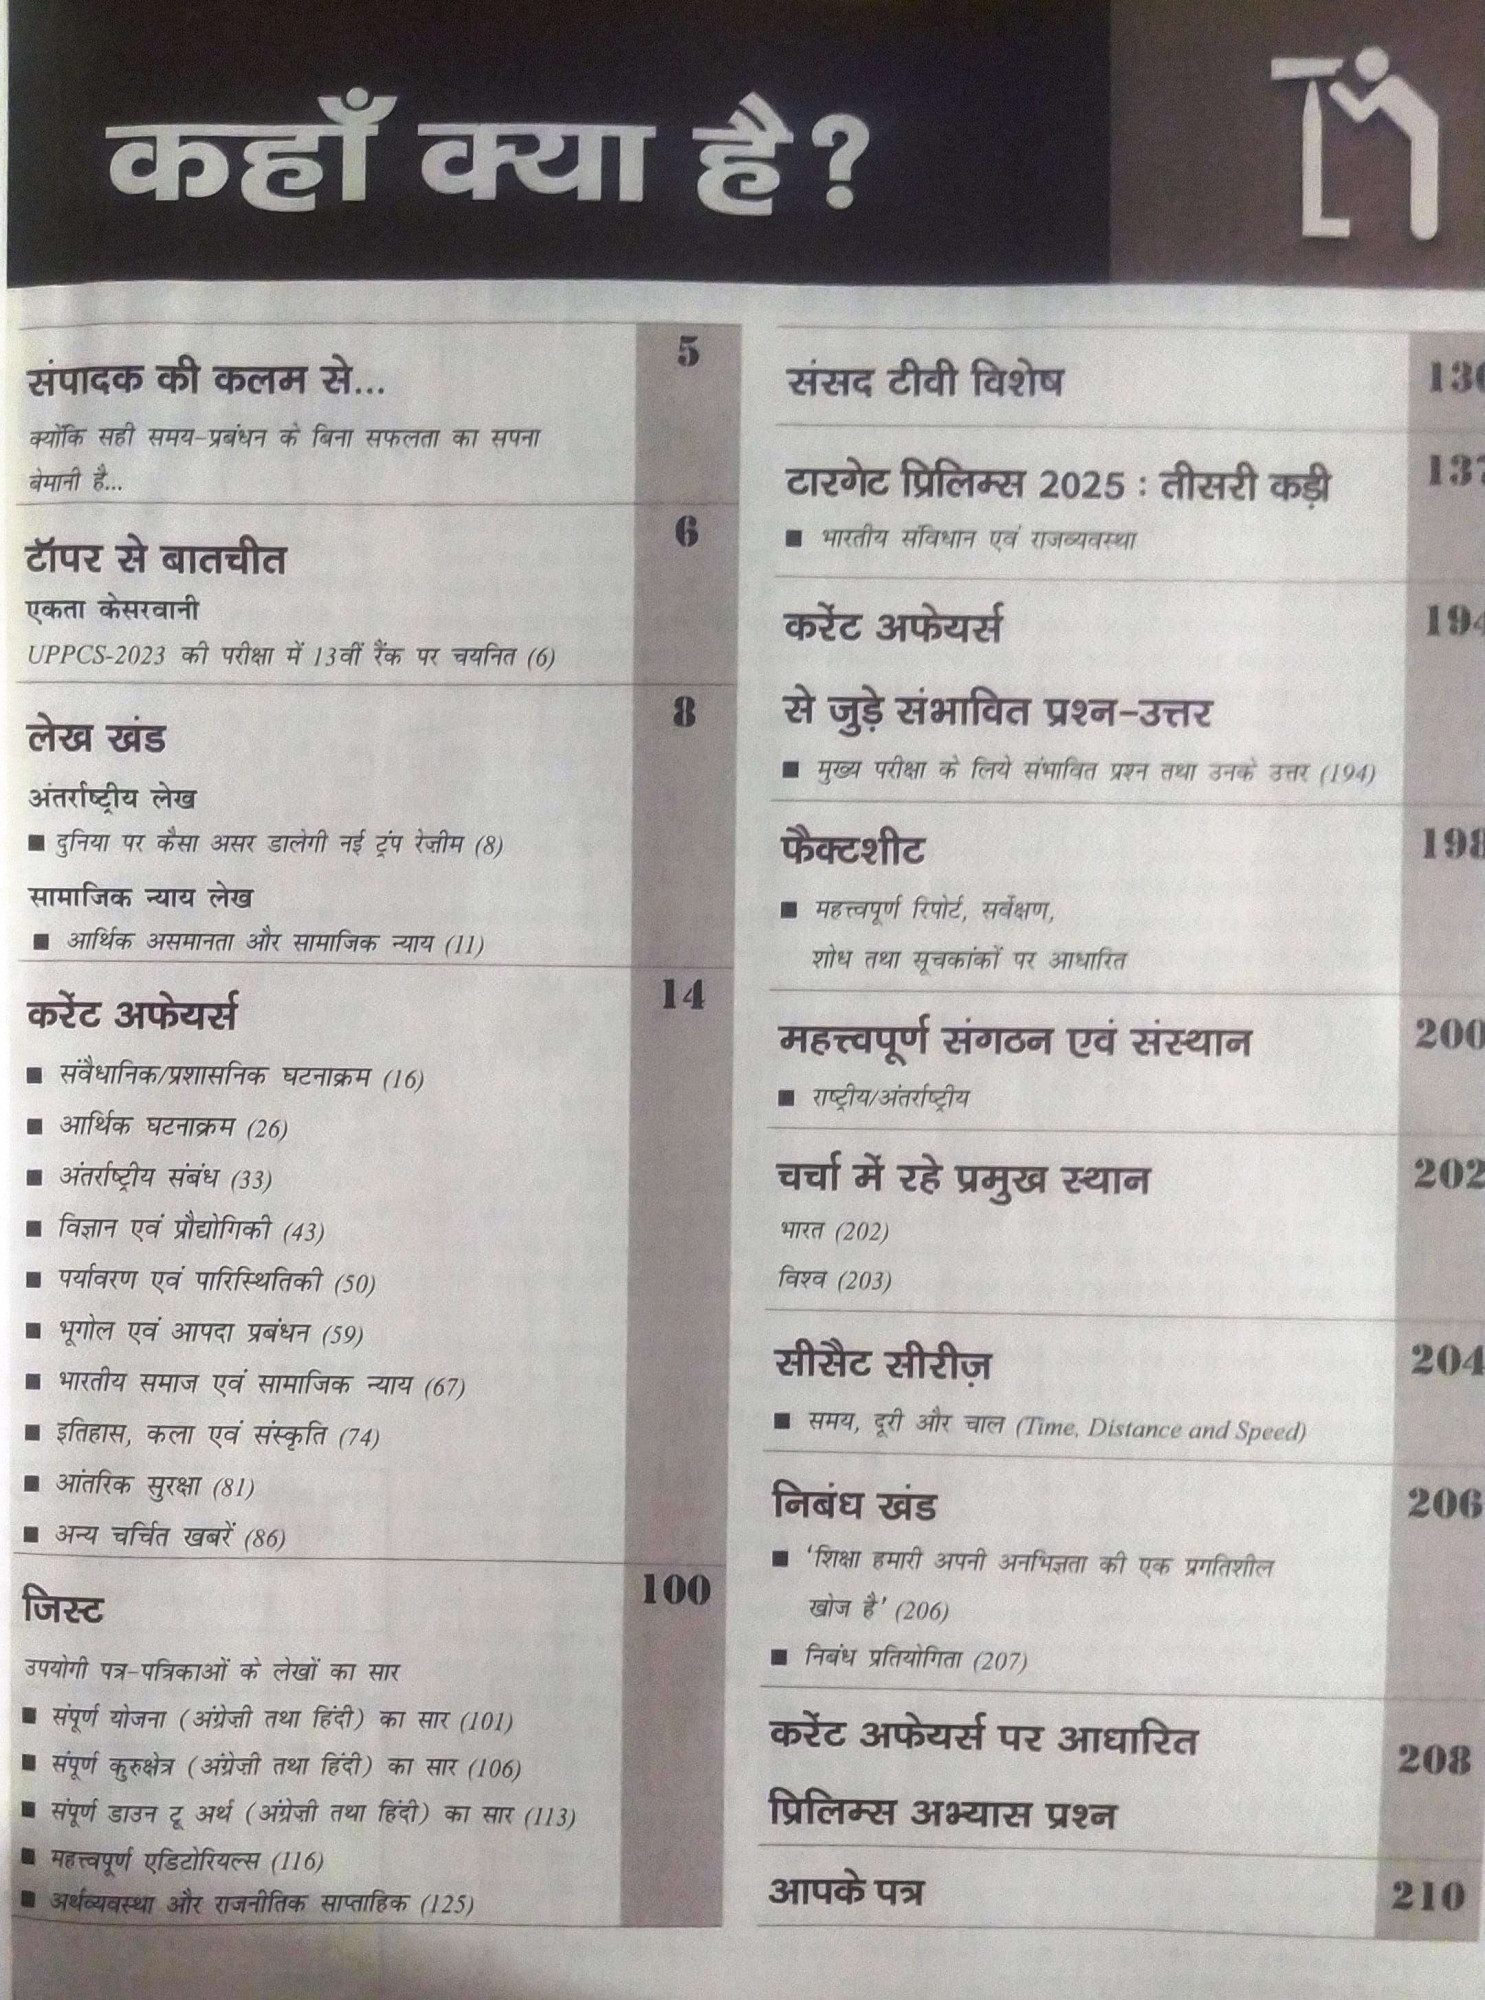 कहाँ क्या है?
संपादक की कलम से...
5
क्योंकि सही समय-प्रबंधन के बिना सफलता का सपना
बेमानी है...
टॉपर से बातचीत
6
एकता केसरवानी
UPPCS-2023 की परीक्षा में 13वीं रैंक पर चयनित (6)
लेख खंड
8
अंतर्राष्ट्रीय लेख
■ दुनिया पर कैसा असर डालेगी नई ट्रंप रेज़ीम (8)
सामाजिक न्याय लेख
■ आर्थिक असमानता और सामाजिक न्याय (11)
करेंट अफेयर्स
14
■ संवैधानिक/प्रशासनिक घटनाक्रम (16)
■ आर्थिक घटनाक्रम (26)
■ अंतर्राष्ट्रीय संबंध (33)
■ विज्ञान एवं प्रौद्योगिकी (43)
■ पर्यावरण एवं पारिस्थितिकी (50)
■ भूगोल एवं आपदा प्रबंधन (59)
■ भारतीय समाज एवं सामाजिक न्याय (67)
■ इतिहास, कला एवं संस्कृति (74)
■ आंतरिक सुरक्षा (81)
■ अन्य चर्चित खबरें (86)
जिस्ट
100
उपयोगी पत्र-पत्रिकाओं के लेखों का सार
■ संपूर्ण योजना (अंग्रेज़ी तथा हिंदी) का सार (101)
■ संपूर्ण कुरुक्षेत्र (अंग्रेज़ी तथा हिंदी) का सार (106)
■ संपूर्ण डाउन टू अर्थ (अंग्रेज़ी तथा हिंदी) का सार (113)
■ महत्त्वपूर्ण एडिटोरियल्स (116)
■ अर्थव्यवस्था और राजनीतिक साप्ताहिक (125)
संसद टीवी विशेष
टारगेट प्रिलिम्स 2025 : तीसरी कड़ी
137
■ भारतीय संविधान एवं राजव्यवस्था
करेंट अफेयर्स
194
से जुड़े संभावित प्रश्न-उत्तर
■ मुख्य परीक्षा के लिये संभावित प्रश्न तथा उनके उत्तर (194)
फैक्टशीट
198
■ महत्त्वपूर्ण रिपोर्ट, सर्वेक्षण,
शोध तथा सूचकांकों पर आधारित
महत्त्वपूर्ण संगठन एवं संस्थान
200
■ राष्ट्रीय/अंतर्राष्ट्रीय
चर्चा में रहे प्रमुख स्थान
202
भारत (202)
विश्व (203)
सीसैट सीरीज़
204
■ समय, दूरी और चाल (Time, Distance and Speed)
निबंध खंड
206
■ ‘शिक्षा हमारी अपनी अनभिज्ञता की एक प्रगतिशील
खोज है’ (206)
■ निबंध प्रतियोगिता (207)
करेंट अफेयर्स पर आधारित
208
प्रिलिम्स अभ्यास प्रश्न
आपके पत्र
210